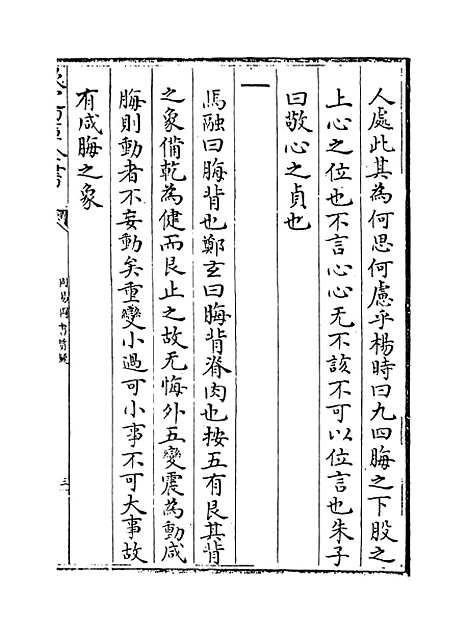 人處此其為何思何慮乎楊時曰九四脢之下股之
上心之位也不言心心无不該不可以位言也朱子
曰敬心之貞也
一
馬融曰脢背也鄭玄曰脢背脊肉也按五有艮其背
之象備乾為健而艮止之故无悔外五變震為動咸
脢則動者不妄動矣重變小過可小事不可大事故
有咸脢之象
周易圖書質疑